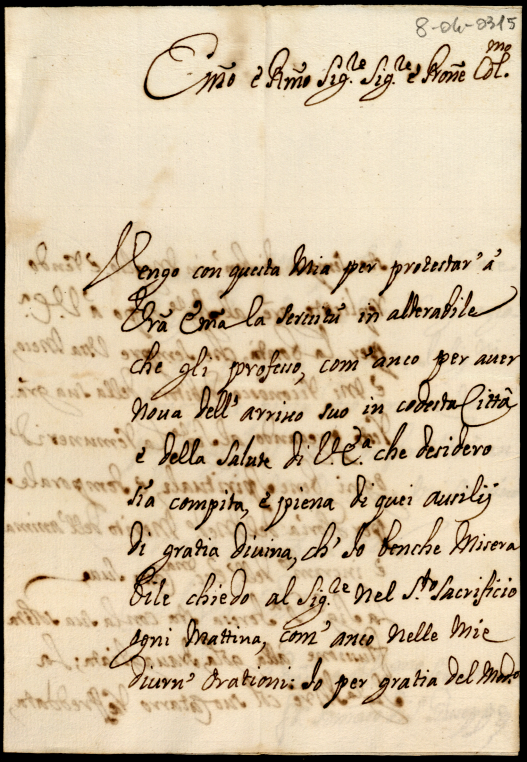 8-04-0315
Em̃o è Rm̃o Sig.re Sig.re è Prõne Col.mo
Vengo con questa Mia per protestar' à
Vr̃a Em̃a la seruitù inalterabile
che gli professo, com'anco per auer
noua dell'arriuo suo in codesta Città
è della salute di V.E.za che desidero
sia compita, è piena di quei ausilij
di gratia diuina, ch'Io benche Misera
bile chiedo al Sig.re nel S.to Sacrificio
ogni Mattina, com'anco nelle Mie
diurn' Orationi: Io per gratia del